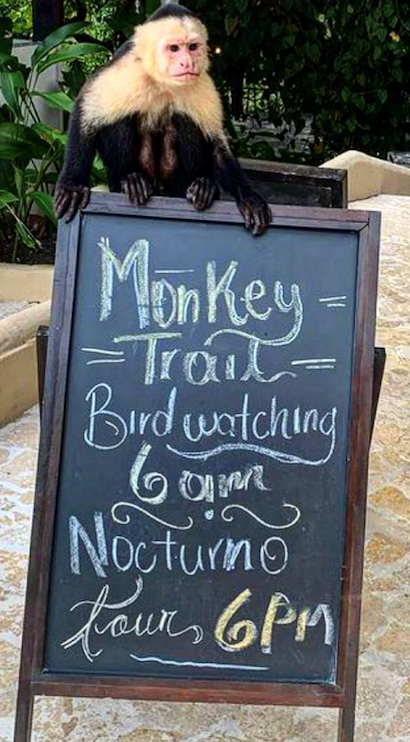 Monkey
Trail
Birdwatching
6 am
Nocturno
tour 6PM